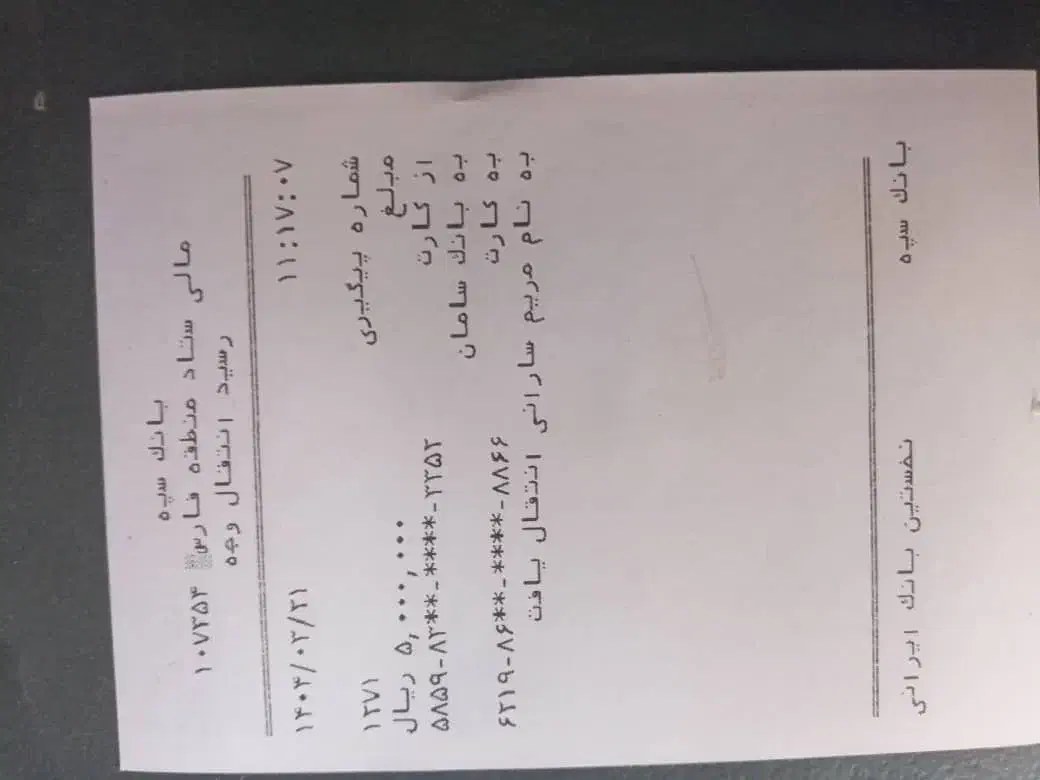 بانک سپه
مالی ستاد منطقه فارس ۱۰۷۳۵۴
رسید انتقال وجه
۱۴۰۴/۰۲/۲۱ ۱۱:۱۷:۰۷
شماره پیگیری ۱۲۷۱
مبلغ ۵,۰۰۰,۰۰۰ ریال
از کارت ۵۸۵۹-۸۳**-****-۲۲۵۲
به بانک سامان
به کارت ۶۲۱۹-۸۶**-****-۸۸۶۶
به نام مریم سارانی انتقال یافت
بانک سپه نخستین بانک ایرانی